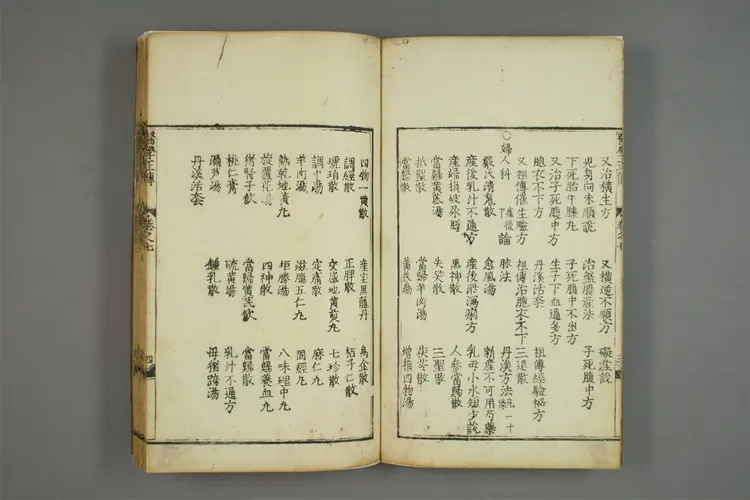 又治橫生方 又橫逆不順方 礙產說
兒身向未順說 治盤腸產法 子死腹中方
下死胎牛膝丸 子死腹中不出方
又治子死腹中方 生子下血過多方
胞衣不下方 丹溪活套
又祖傳催生驗方 祖傳治胞衣不下 祖傳經驗極方
○婦人科下 產後論 脉法 三退散
嚴氏清魂散 愈風湯 丹溪方法
產後乳汁不通方 產後泄瀉痢方 新產不可用芍藥
產婦損破尿脬 黑神散 乳母小水短少說
當歸黃芪湯 失笑散 人參當歸散
抵聖散 當歸羊肉湯 三聖散
當歸散 黃芪湯 茯苓散
增損四物湯
醫學正傳 卷之七
四物一黃散 產寶黑龍丹 烏金散
調經散 正脾散 栢子仁散
琥珀散 交感地黃丸 七珍散
調中湯 定痛散 麻仁丸
羊肉湯 滋腸五仁丸 固經丸
熟乾地黃丸 抵勝湯 八味理中丸
旋覆花湯 四神散 當歸養血丸
猪腎子飲 當歸黃芪飲 當歸散
桃仁膏 硫黃湯 乳汁不通方
漏芦湯 鍾乳散 母猪蹄湯
丹溪活套
醫學正傳 卷之七 四